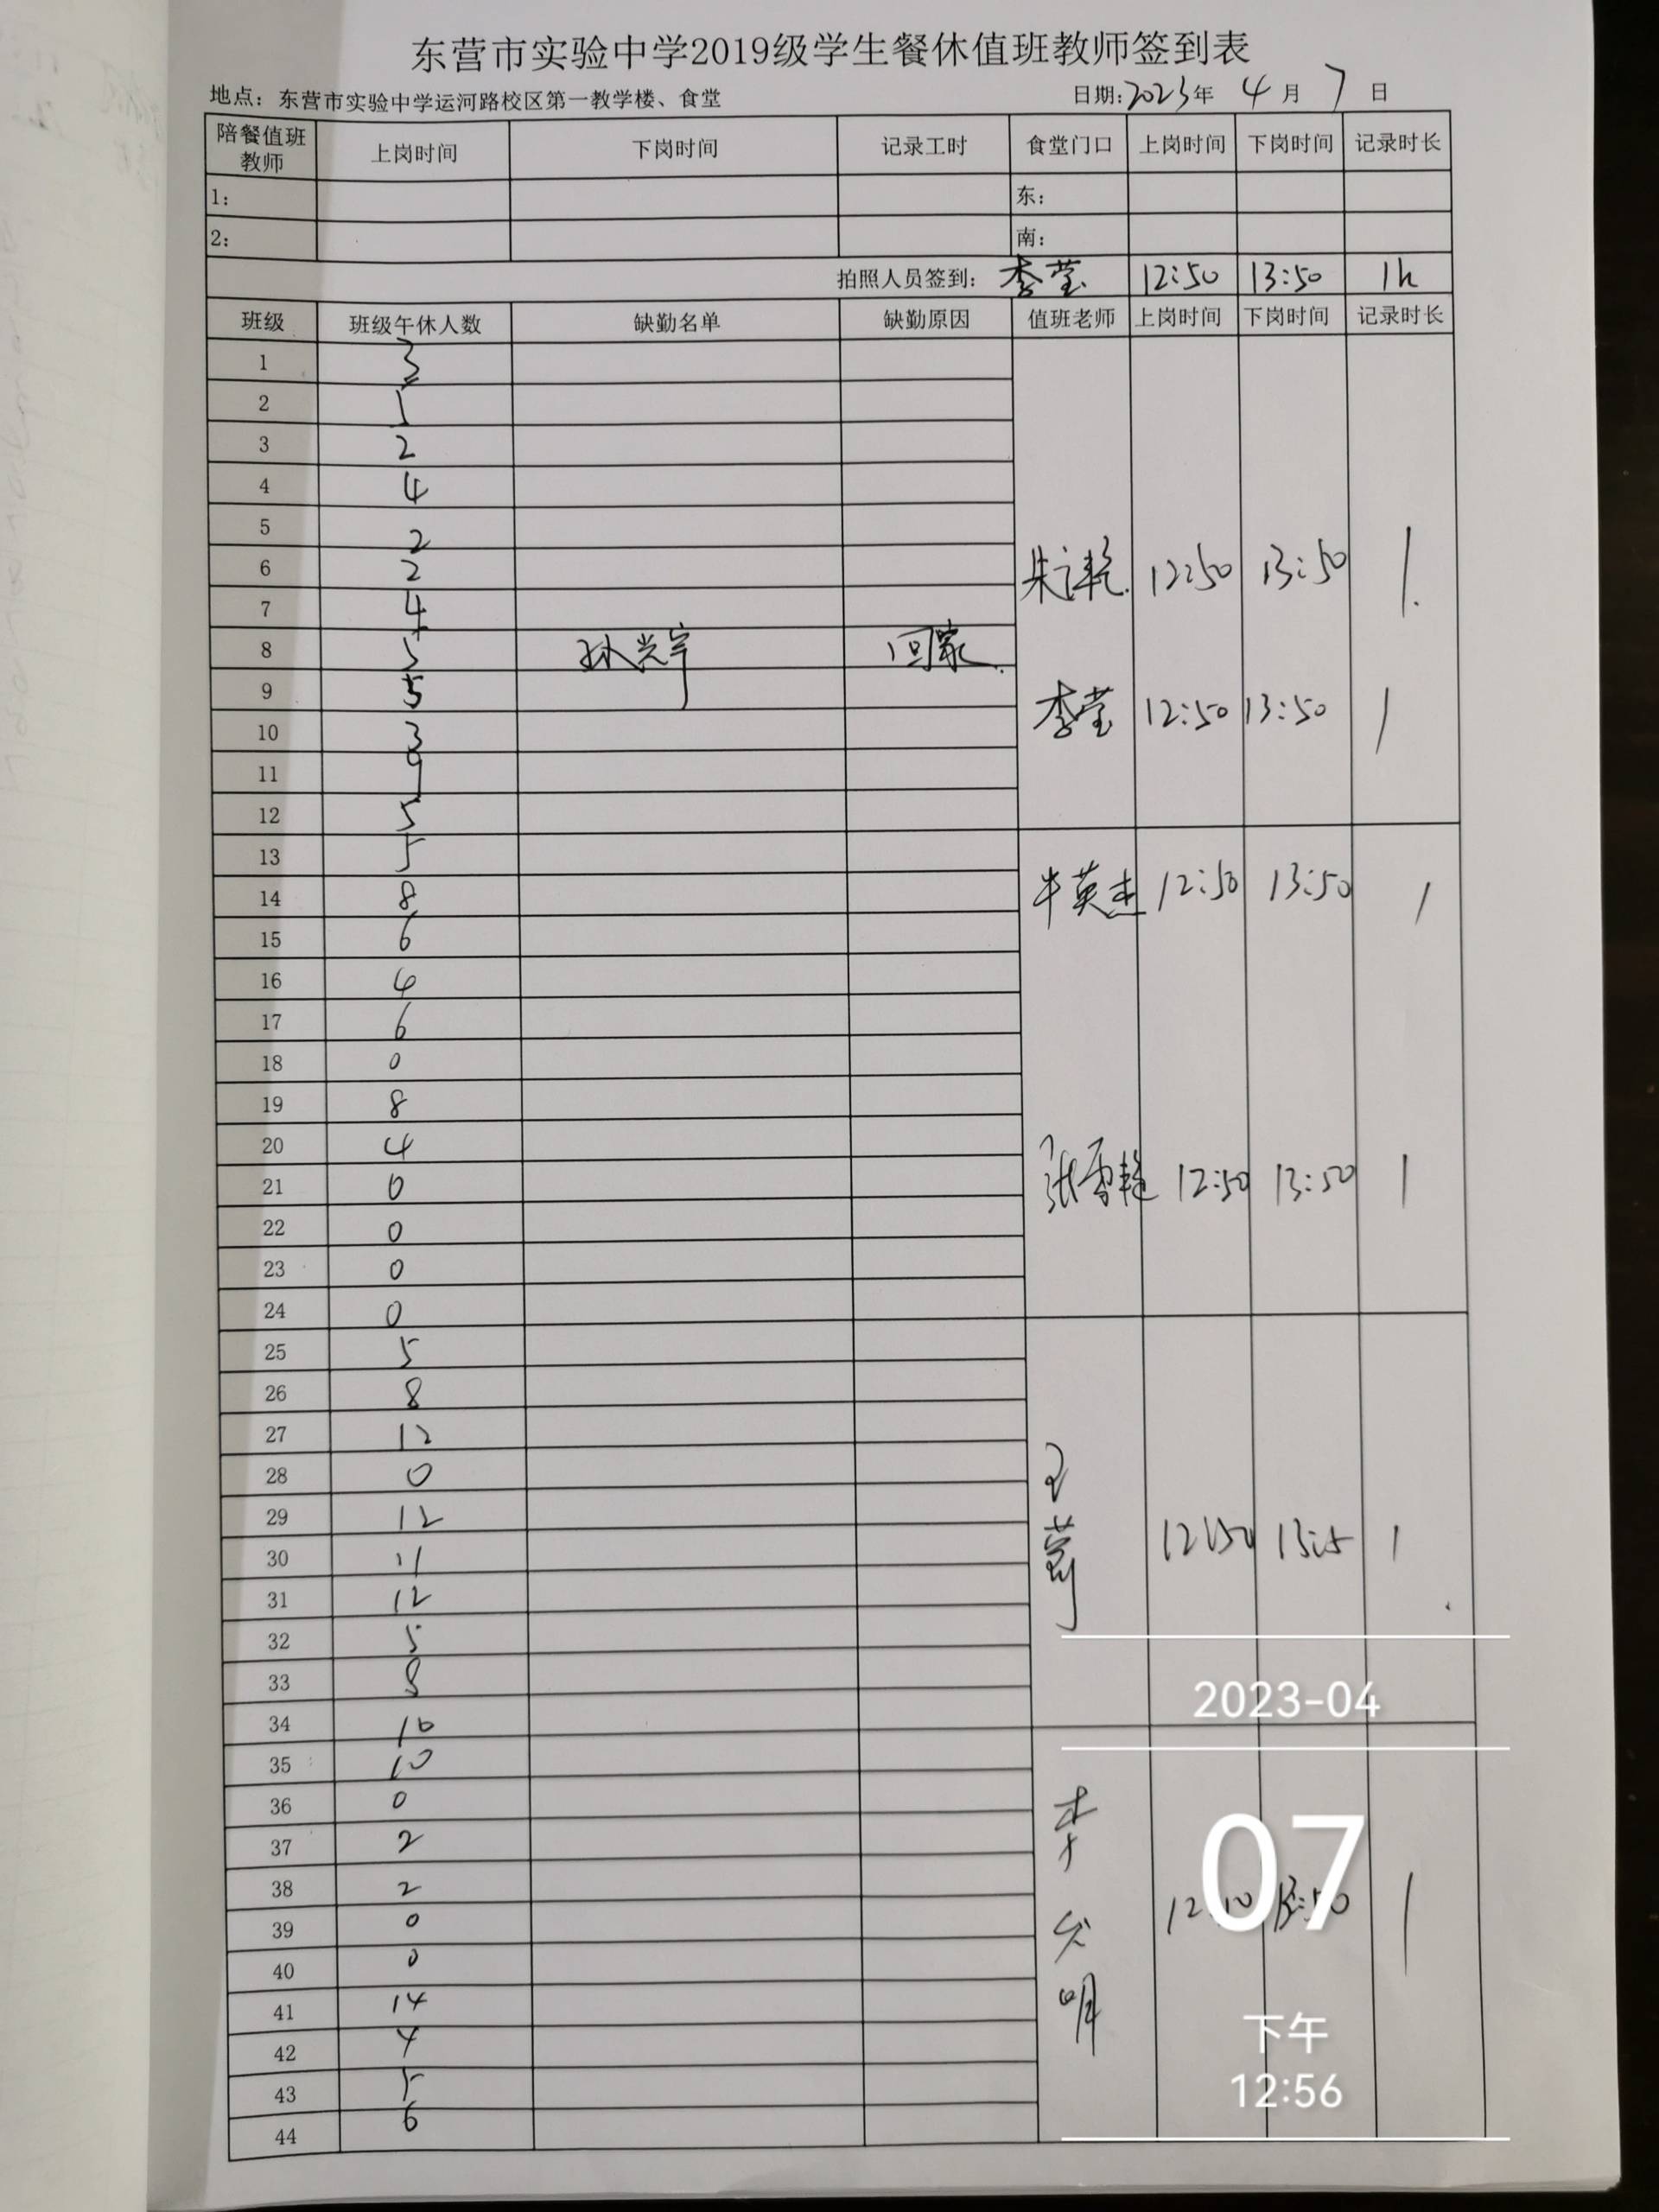 东营市实验中学2019级学生餐休值班教师签到表
地点：东营市实验中学运河路校区第一教学楼、食堂 日期:2023年 4月 7日
陪餐值班教师 上岗时间 下岗时间 记录工时 食堂门口 上岗时间 下岗时间 记录时长
1: 东:
2: 南:
拍照人员签到: 李莹 12:50 13:50 1h
班级 班级午休人数 缺勤名单 缺勤原因 值班老师 上岗时间 下岗时间 记录时长
1 3
2 1
3 2
4 4
5 2
6 2 12:50 13:50 1
7 4
8 5 回家
9 5 李莹 12:50 13:50 1
10 3
11 9
12 5
13 5
14 8 牛英杰 12:50 13:50 1
15 6
16 4
17 6
18 0
19 8
20 4
21 0 张雪艳 12:50 13:50 1
22 0
23 0
24 0
25 5
26 8
27 12
28 0
29 12
30 11 12:50 1
31 12
32 5
33 8
34 10
35 10
36 0
37 2
38 2
39 0 13:50 1
40 0
41 14
42 4
43 5
44 6
2023-04
07
下午
12:56